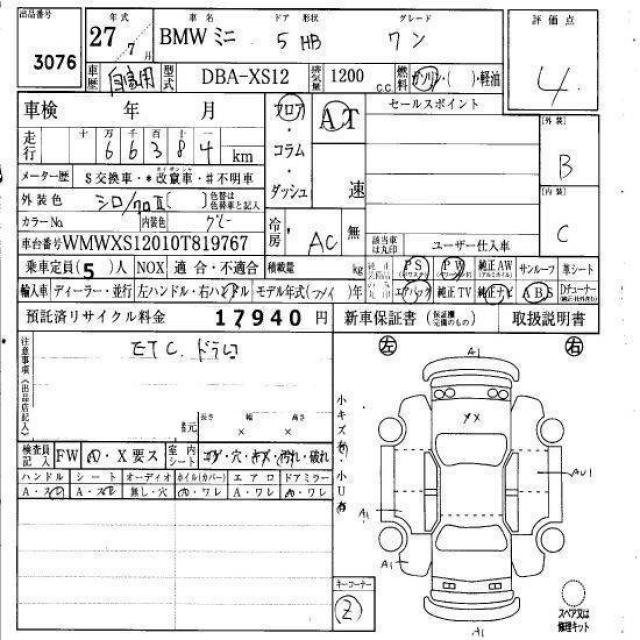 出品番号 3076
年式 27年 7月
車名 BMW ミニ
ドア 形状 5 HB
グレード ワン
評価点 4
車歴 自家用
型式 DBA-XS12
排気量 1200 c.c.
燃料 ガソリン・( )・軽油
車検 年 月
フロア・コラム・ダッシュ
AT
速
セールスポイント
走行 十 万 千 百 十 一
6 6 3 8 4 km
[外装] B
メーター歴 $交換車・*改竄車・#不明車
外装色 シロ/クロⅡ( ) 色替は色替車と記入
[内装] C
カラーNo 内装色 グレー
冷房 AC 無
車台番号 WMWXS12010T819767
該当車は丸印
ユーザー仕入車
乗車定員(5)人 NOX 適合・不適合 積載量 kg
PS PW 純正AW サンルーフ 革シート
輸入車 ディーラー・並行 左ハンドル・右ハンドル モデル年式(フメイ)年
エアバック 純正TV 純正ナビ ABS Dチューナー
預託済リサイクル料金 17940円
新車保証書 (保証欄完備のもの) 取扱説明書
注意事項(出品店記入)
ETC ドラレコ
左 右
A1
諸元 長さ × 幅 × 高さ
小キズ有・小U有
XX
検査員記入 FW A・X要ス 室内シート コゲ・穴・キズ・汚れ・破れ
AU1
ハンドル シート オーディオ ホイル(カバー) エアロ ドアミラー
A・スレ A・スレ 無し・穴 A・ワレ A・ワレ A・ワレ
A1
A1
キーコーナー
2
スペア又は修理キット
A1